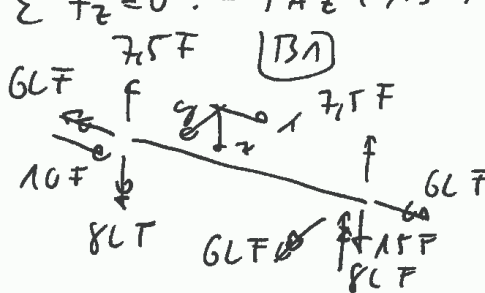 Σ Fz = 0 : - FAz
7,5 F
B1
6LF
y
x
7,5 F
z
10F
6LF
8LF
6LF
15F
8LF